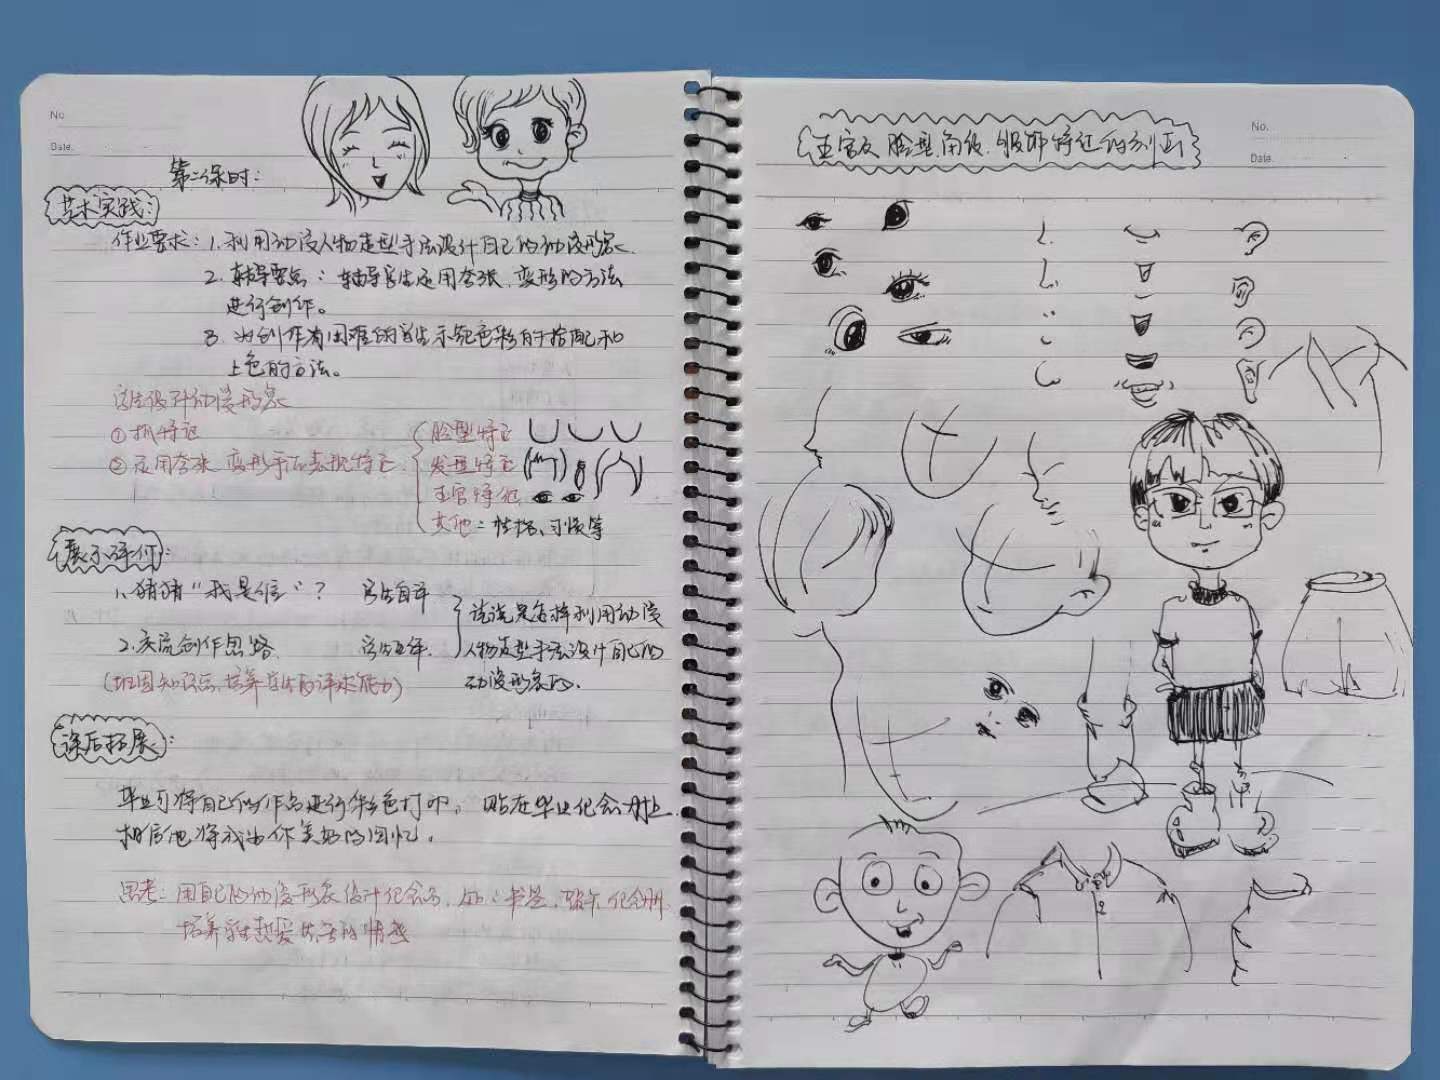 No.
Date.
第二课时:
艺术实践:
作业要求: 1.利用动漫人物造型手法设计自己的动漫形象.
2.辅导要点: 辅导学生运用夸张、变形的方法
进行创作。
3.对创作有困难的学生示范色彩的搭配和
上色的方法。
学生设计动漫形象
①抓特征
②运用夸张 变形手法表现特征
脸型特征
发型特征
五官特征
其他: 性格、习惯等
展示评价:
1.猜猜“我是谁”? 学生自评
说说是怎样利用动漫
2.交流创作思路 学生互评.
人物造型手法设计自己的
(巩固知识点,培养学生的评述能力)
动漫形象的.
课后拓展:
毕业可将自己的作品进行彩色打印, 贴在毕业纪念册上.
相信它将成为你美好的回忆.
思考: 用自己的动漫形象设计纪念品, 如: 书签、纪念册.
培养学生热爱生活的情感
No.
Date.
五官及脸型、角度、服饰特征的刻画